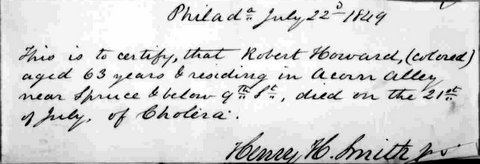 Philada July 22d 1849
This is to certify, that Robert Howard, (colored)
aged 63 years & residing in Acorn Alley
near Spruce & below 9th St, died on the 21st
of July, of Cholera.
Henry H. Smith